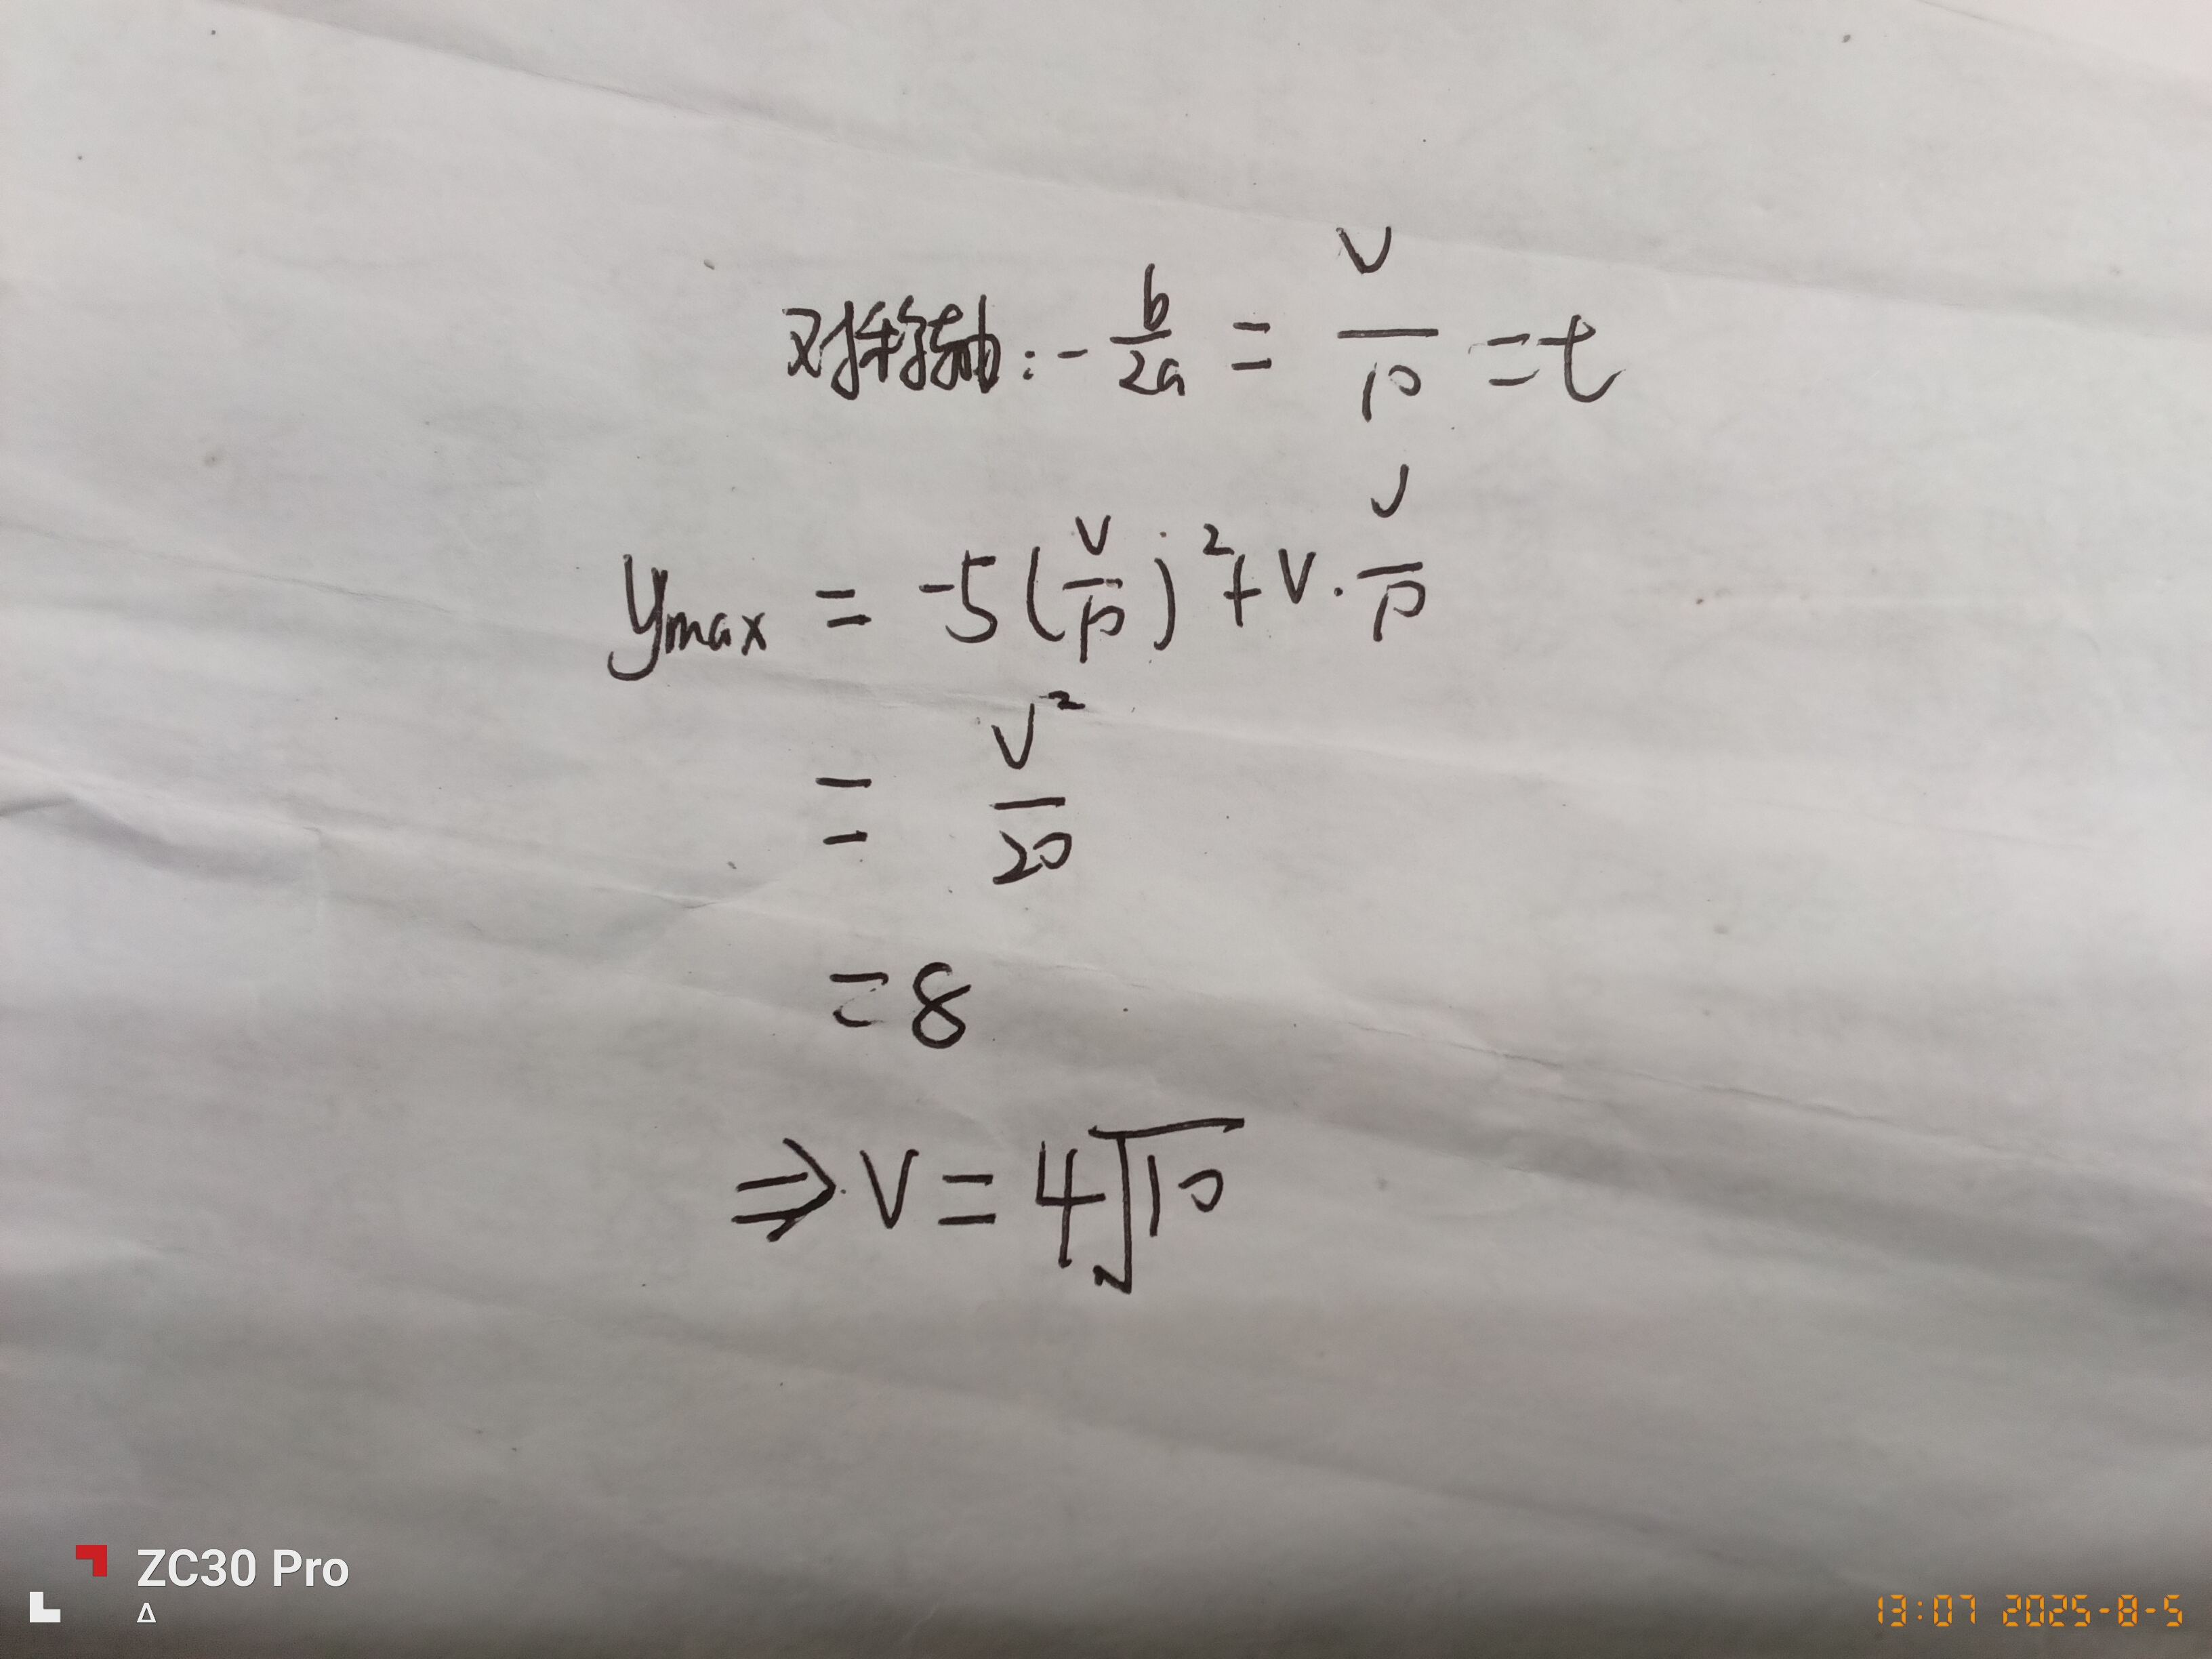 对称轴：-b/2a = v/10 = t
ymax = -5(v/10)²+v·v/10
= v²/20
=8
⇒v=4√10
ZC30 Pro
Δ
13:07 2025-8-5